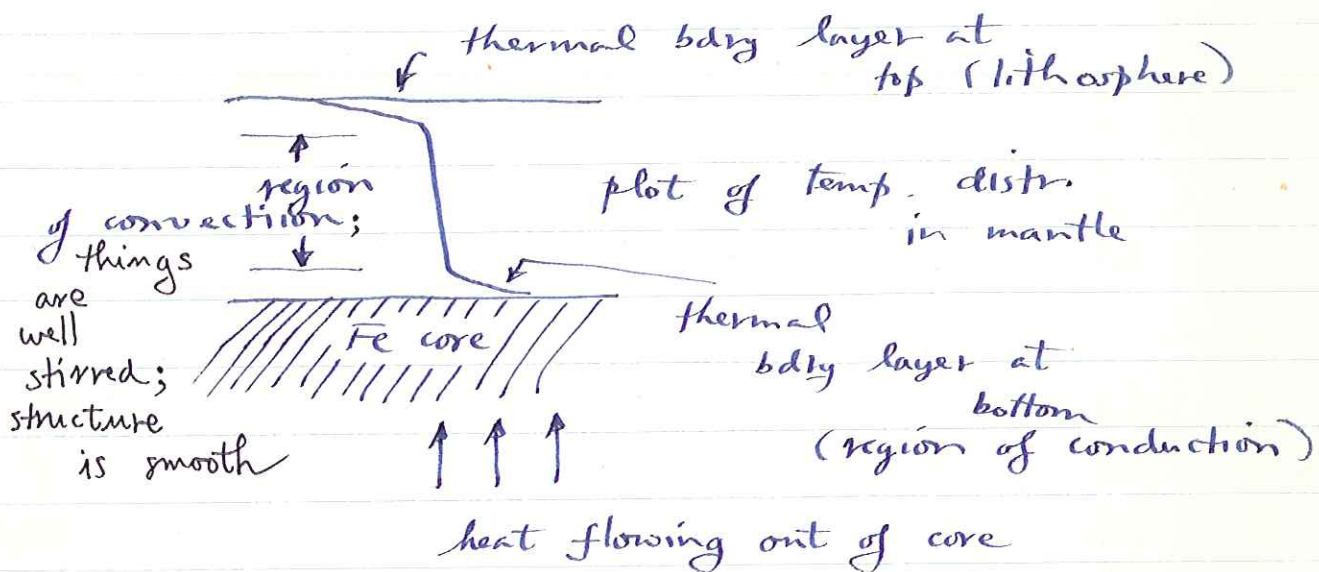 thermal bdry layer at
top (lithosphere)
region
of convectiion;
things
are
well
stirred;
structure
is smooth
plot of temp. distr.
in mantle
Fe core
thermal
bdry layer at
bottom
(region of conduction)
heat flowing out of core